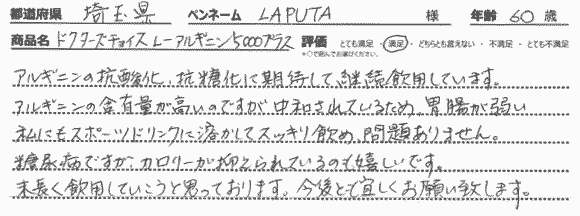 都道府県 埼玉県 ペンネーム LAPUTA 様 年齢 60 歳
商品名 ドクターズチョイス L-アルギニン5000プラス 評価 とても満足 ・ 満足 ・ どちらとも言えない ・ 不満足 ・ とても不満足
*○で囲んでお選びください。
アルギニンの抗酸化、抗糖化に期待して継続飲用しています。
アルギニンの含有量が高いのですが中和されているため、胃腸が弱い
私にもスポーツドリンクに溶かしてスッキリ飲め、問題ありません。
糖尿病ですが、カロリーが抑えられているのも嬉しいです。
末長く飲用していこうと思っております。今後とも宜しくお願い致します。